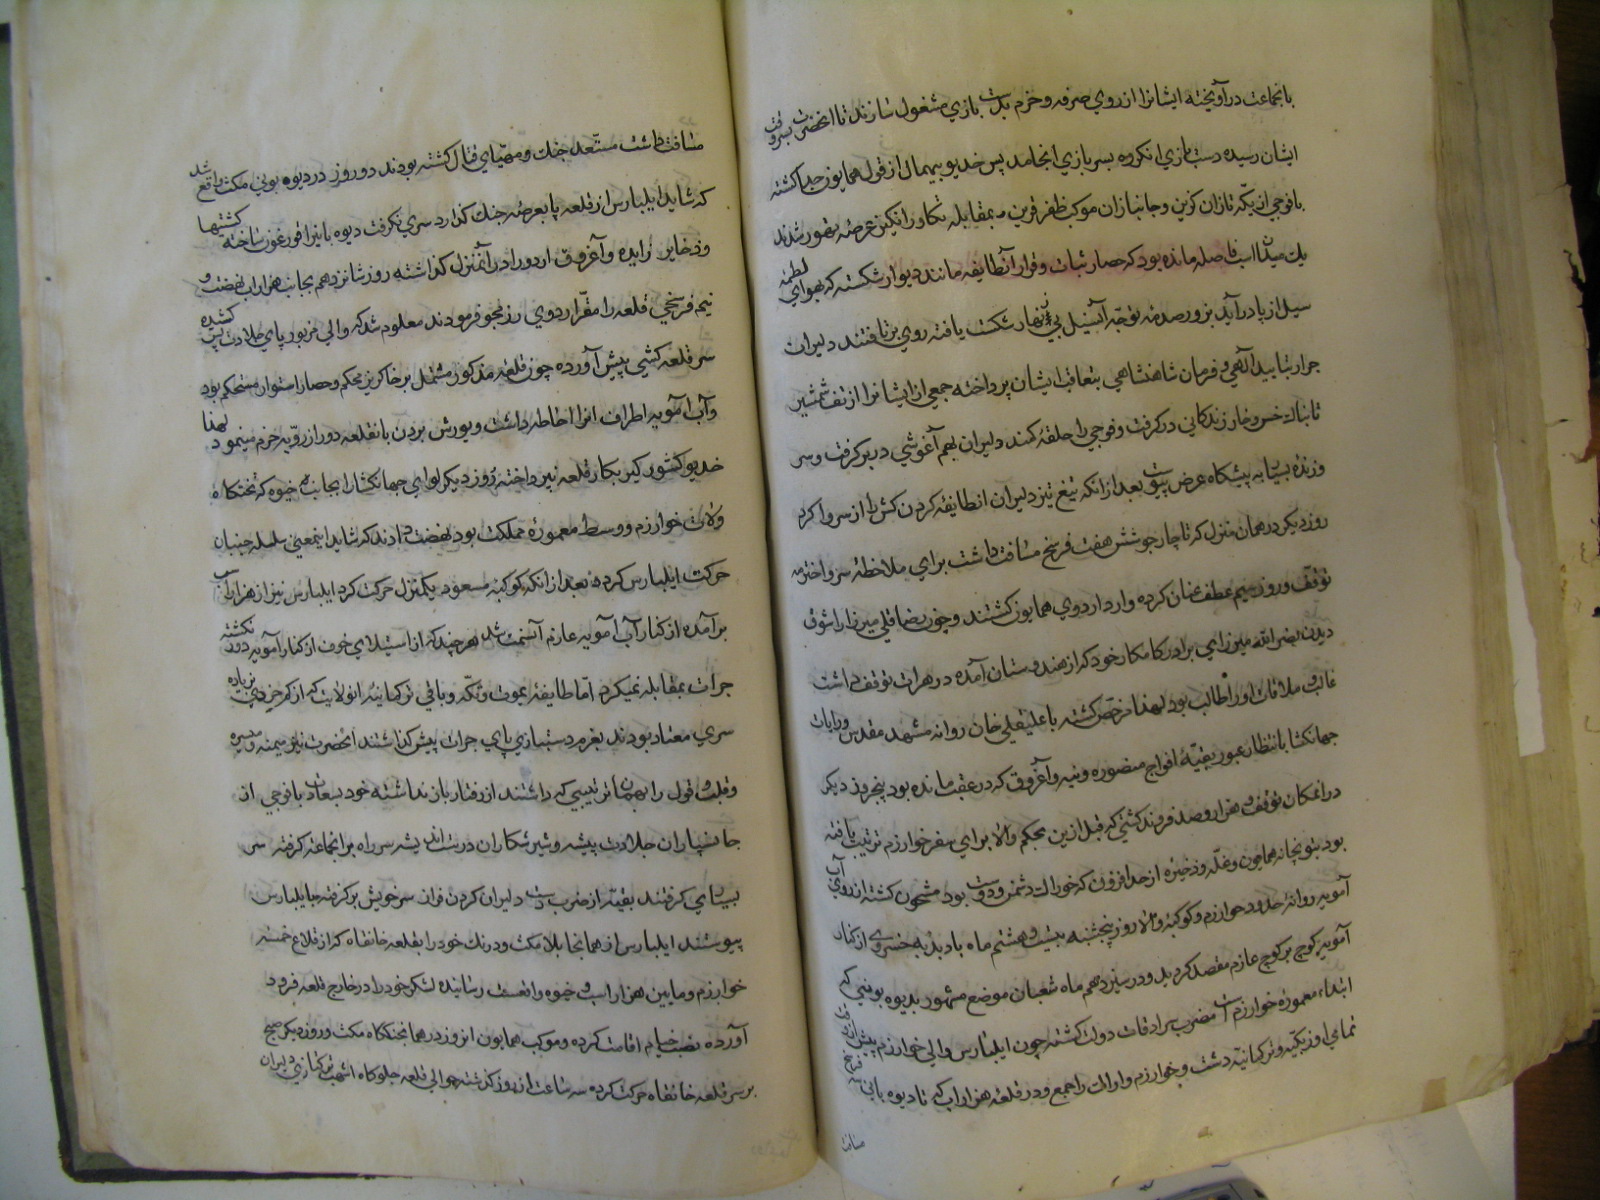 با نجماعت در آویخته ایشانرا از روی صرفه و حزم بدست بازی مشغول سازند تا آنحضرت بسروقت
ایشان رسیده دست بازی انکروه بسر بازی انجامد پس خدیو بیهمال از قول همایون جدا کشته
با فوجی از یکه تازان کزین و جانبازان موکب ظفر قرین بمقابله تکاور انکیز عرصه تهور شدند
یک میدان اسب فاصله مانده بود که حصار ثبات و قرار آنطایفه مانند دیوار شکسته که بهوای لطمه
سیل از پا در آید بزور صدمه توجه آنسیل بی زنهار شکست یافته روی برتافتند دلیران
جرار بتایید آلهی و فرمان شاهنشاهی بتعاقب ایشان پرداخته جمعی از ایشانرا از تف شمشیر
تابناک خس و خار زندکانی در کرفت و فوجی را حلقه کمند دلیران بهم آغوشی در بر کرفت و سر
و زنده بسیار به پیشکاه عرض پیوست بعد از انکه تیغ تیز دلیران انطایفه کردن کش را از سر وا کرد
روز دیکر در همان منزل که تا چارجو شش هفت فرسخ مسافت داشت برای ملاحظه سر و اخترمه
توقف و روز سیم عطف عنان کرده وارد اردوی همایون کشتند و چون رضا قلی میرزا را شوق
دیدن نصر الله میرزای برادر کامکار خود که از هندوستان آمده در هرات توقف داشت
غالب و ملاقات او را طالب بود لهذا مرخص کشته با علیقلی خان روانه مشهد مقدس و رایات
جهانکشا بانتظار عبور بقیه افواج منصوره و بنه و آغروق که در عقب مانده بود پنجروز دیکر
در انمکان توقف و هزار و صد فروند کشتی که قبل ازین بحکم والا برای سفر خوارزم ترتیب یافته
بود بتوپخانه همایون و غله و ذخیره از حد افزون که خوراک دشمن و دوست بود مشحون کشته از روی آب
آمویه روانه حدود خوارزم و کوکبه والا روز پنجشنبه بیست و هشتم ماه با دبدبه خسروی از کنار
آمویه کوچ بر کوچ عازم مقصد کردید و در سیزدهم ماه شعبان موضع مشهور بدیوه بوینی که
ابتداء معموره خوارزم است مضرب سرادقات دولت کشته چون ایلبارس والی خوارزم پیش از وقت
تمامی اوزبکیه و ترکمانیه دشت و خوارزم و ارالات را جمع و در قلعه هزار اسب که تا دیوه باینی
مسافت
مسافت داشت مستعد جنک و مهیای قتال کشته بودند دو روز در دیوه بوینی مکث واقع شد
که شاید ایلبارس از قلعه پا بعرصه جنک کذارد سری نکرفت دیوه باینرا قورغون ساخته کشتیها
و ذخایر زایده و آغروق اردو را در آنمنزل کذاشته روز شانزدهم بجانب هزار اسب نهضت و
نیم فرسخی قلعه را مقر اردوی رزمجو فرمودند معلوم شد که والی مزبور پای جلادت پس کشیده
سر قلعه کشی پیش آورده چون قلعه مذکور مشتمل بر خاکریز محکم و حصار استوار مستحکم بود
و آب آمویه اطراف انرا احاطه داشت و یورش بردن بانقلعه دور از رویه حزم مینمود لهذا
خدیو کشور کیر بکار قلعه نپرداخته روز دیکر لوای جهانکشا را بجانب خیوه که تختکاه
ولات خوارزم و وسط معموره مملکت بود نهضت دادند که شاید اینمعنی سلسله جنبان
حرکت ایلبارس کردد بعد از انکه کوکبه مسعود یکمنزل حرکت کرد ایلبارس نیز از هزار اسب
بر آمده از کنار آب آمویه عازم آنسمت شد هر چند که از استیلای خوف از کنار آمویه دور نکشته
جرات بمقابله نمیکرد اما طایفه یموت و تکه و باقی ترکمانیه انولایت که از کم خردی بزیاده
سری معتاد بودند بعزم دستبازی پای جرات پیش کذاشتند آنحضرت نیز میمنه و میسره
و قلب و قول را بهمان ترتیبی که داشتند از رفتار باز نداشته خود بسعادت با فوجی از
جانسپاران جلادت پیشه و شیر شکاران درست اندیشه سر راه بر انجماعت کرفته سر
بسیاری کرفتند بقیه از ضرب دست دلیران کردن فراز سر خویش بر کرفته بایلبارس
پیوستند ایلبارس از همانجا بلا مکث و درنک خود را بقلعه خانقاه که از قلاع خمسه
خوارزم و مابین هزار اسب و خیوه واقعست رسانیده لشکر خود را در خارج قلعه فرود
آورده نصب خیام اقامت کرده و موکب همایون انروز در همان جنکگاه مکث و روز دیکر صبح
بر سر قلعه خانقاه حرکت کرده سه ساعت از روز کذشته حوالی قلعه جلوه کاه اشهب ترکتازی دلیران